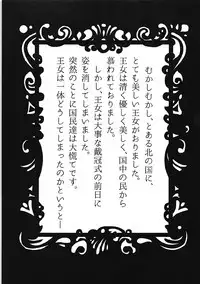 むかしむかし、とある北の国に、
とても美しい王女がおりました。
王女は清く優しく美しく、国中の民から
慕われておりました。
しかし、王女は大事な戴冠式の前日に
姿を消してしまいました。
突然のことに国民達は大慌てです。
王女は一体どうしてしまったのかというと―